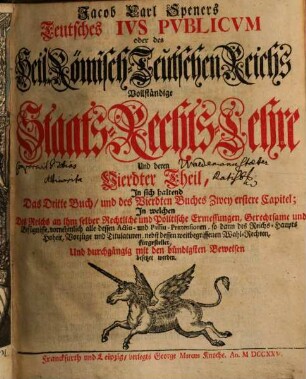 Jacob Carl Speners
Teutsches IVS PVBLICVM
oder des
Heil. Römisch-Teutschen Reichs
Vollständige
Staats-Rechts-Lehre
Und deren
Vierdter Theil,
In sich haltend
Das Dritte Buch/ und des Vierdten Buches Zwey erstere Capitel;
In welchen
Des Reichs an ihm selber Rechtliche und Politische Ermessungen, Gerechtsame und
Befugnisse, vornehmlich alle dessen Activ- und Passiv-Prætensionen, so dann des Reichs-Haupts
Hoheit, Vorzüge und Titulaturen, nebst dessen Wahl-Rechten,
fürgestellet,
Und durchgängig mit den bündigsten Beweisen
besetzet werden.
Franckfurth und Leipzig verlegts George Marcus Knoche. An. M DCCXXV.